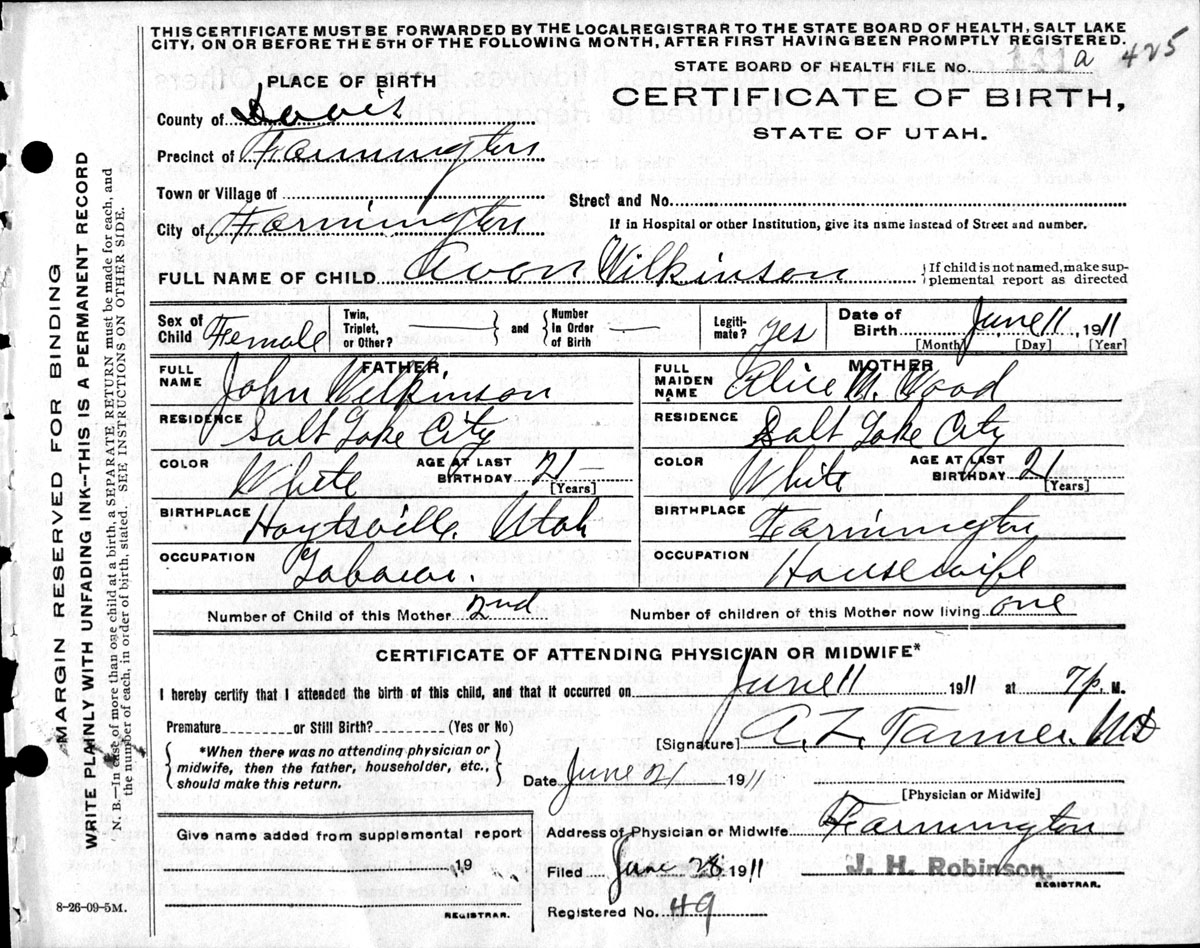 THIS CERTIFICATE MUST BE FORWARDED BY THE LOCAL REGISTRAR TO THE STATE BOARD OF HEALTH, SALT LAKE
CITY, ON OR BEFORE THE 5TH OF THE FOLLOWING MONTH, AFTER FIRST HAVING BEEN PROMPTLY REGISTERED.
STATE BOARD OF HEALTH FILE No. 131 a 425
PLACE OF BIRTH
CERTIFICATE OF BIRTH,
STATE OF UTAH.
County of Davis
Precinct of Farmington
Town or Village of
Street and No.
City of Farmington
If in Hospital or other Institution, give its name instead of Street and number.
FULL NAME OF CHILD Avon Wilkinson
If child is not named, make sup-
plemental report as directed
Sex of Child Female
Twin, Triplet, or Other? and Number In Order of Birth
Legiti-mate? yes
Date of Birth June 11, 1911
[Month] [Day] [Year]
FATHER.
FULL NAME John Wilkinson
RESIDENCE Salt Lake City
COLOR White AGE AT LAST BIRTHDAY 21
[Years]
BIRTHPLACE Hoytsville, Utah
OCCUPATION Laborer.
MOTHER
FULL MAIDEN NAME Alice M. Wood
RESIDENCE Salt Lake City
COLOR White AGE AT LAST BIRTHDAY 21
[Years]
BIRTHPLACE Farmington
OCCUPATION Housewife
Number of Child of this Mother 2nd Number of children of this Mother now living one
CERTIFICATE OF ATTENDING PHYSICIAN OR MIDWIFE*
I hereby certify that I attended the birth of this child, and that it occurred on June 11 1911 at 7 p. M.
Premature or Still Birth? (Yes or No)
*When there was no attending physician or
midwife, then the father, householder, etc.,
should make this return.
[Signature] A. Z. Tanner. MD
Date June 21 1911
[Physician or Midwife]
Give name added from supplemental report
19
REGISTRAR.
Address of Physician or Midwife Farmington
Filed June 28 1911 J. H. Robinson.
REGISTRAR.
Registered No. 49
8-26-09-5M.
MARGIN RESERVED FOR BINDING
WRITE PLAINLY WITH UNFADING INK--THIS IS A PERMANENT RECORD
N. B.--In case of more than one child at a birth, a SEPARATE RETURN must be made for each, and
the number of each, in order of birth, stated. SEE INSTRUCTIONS ON OTHER SIDE.